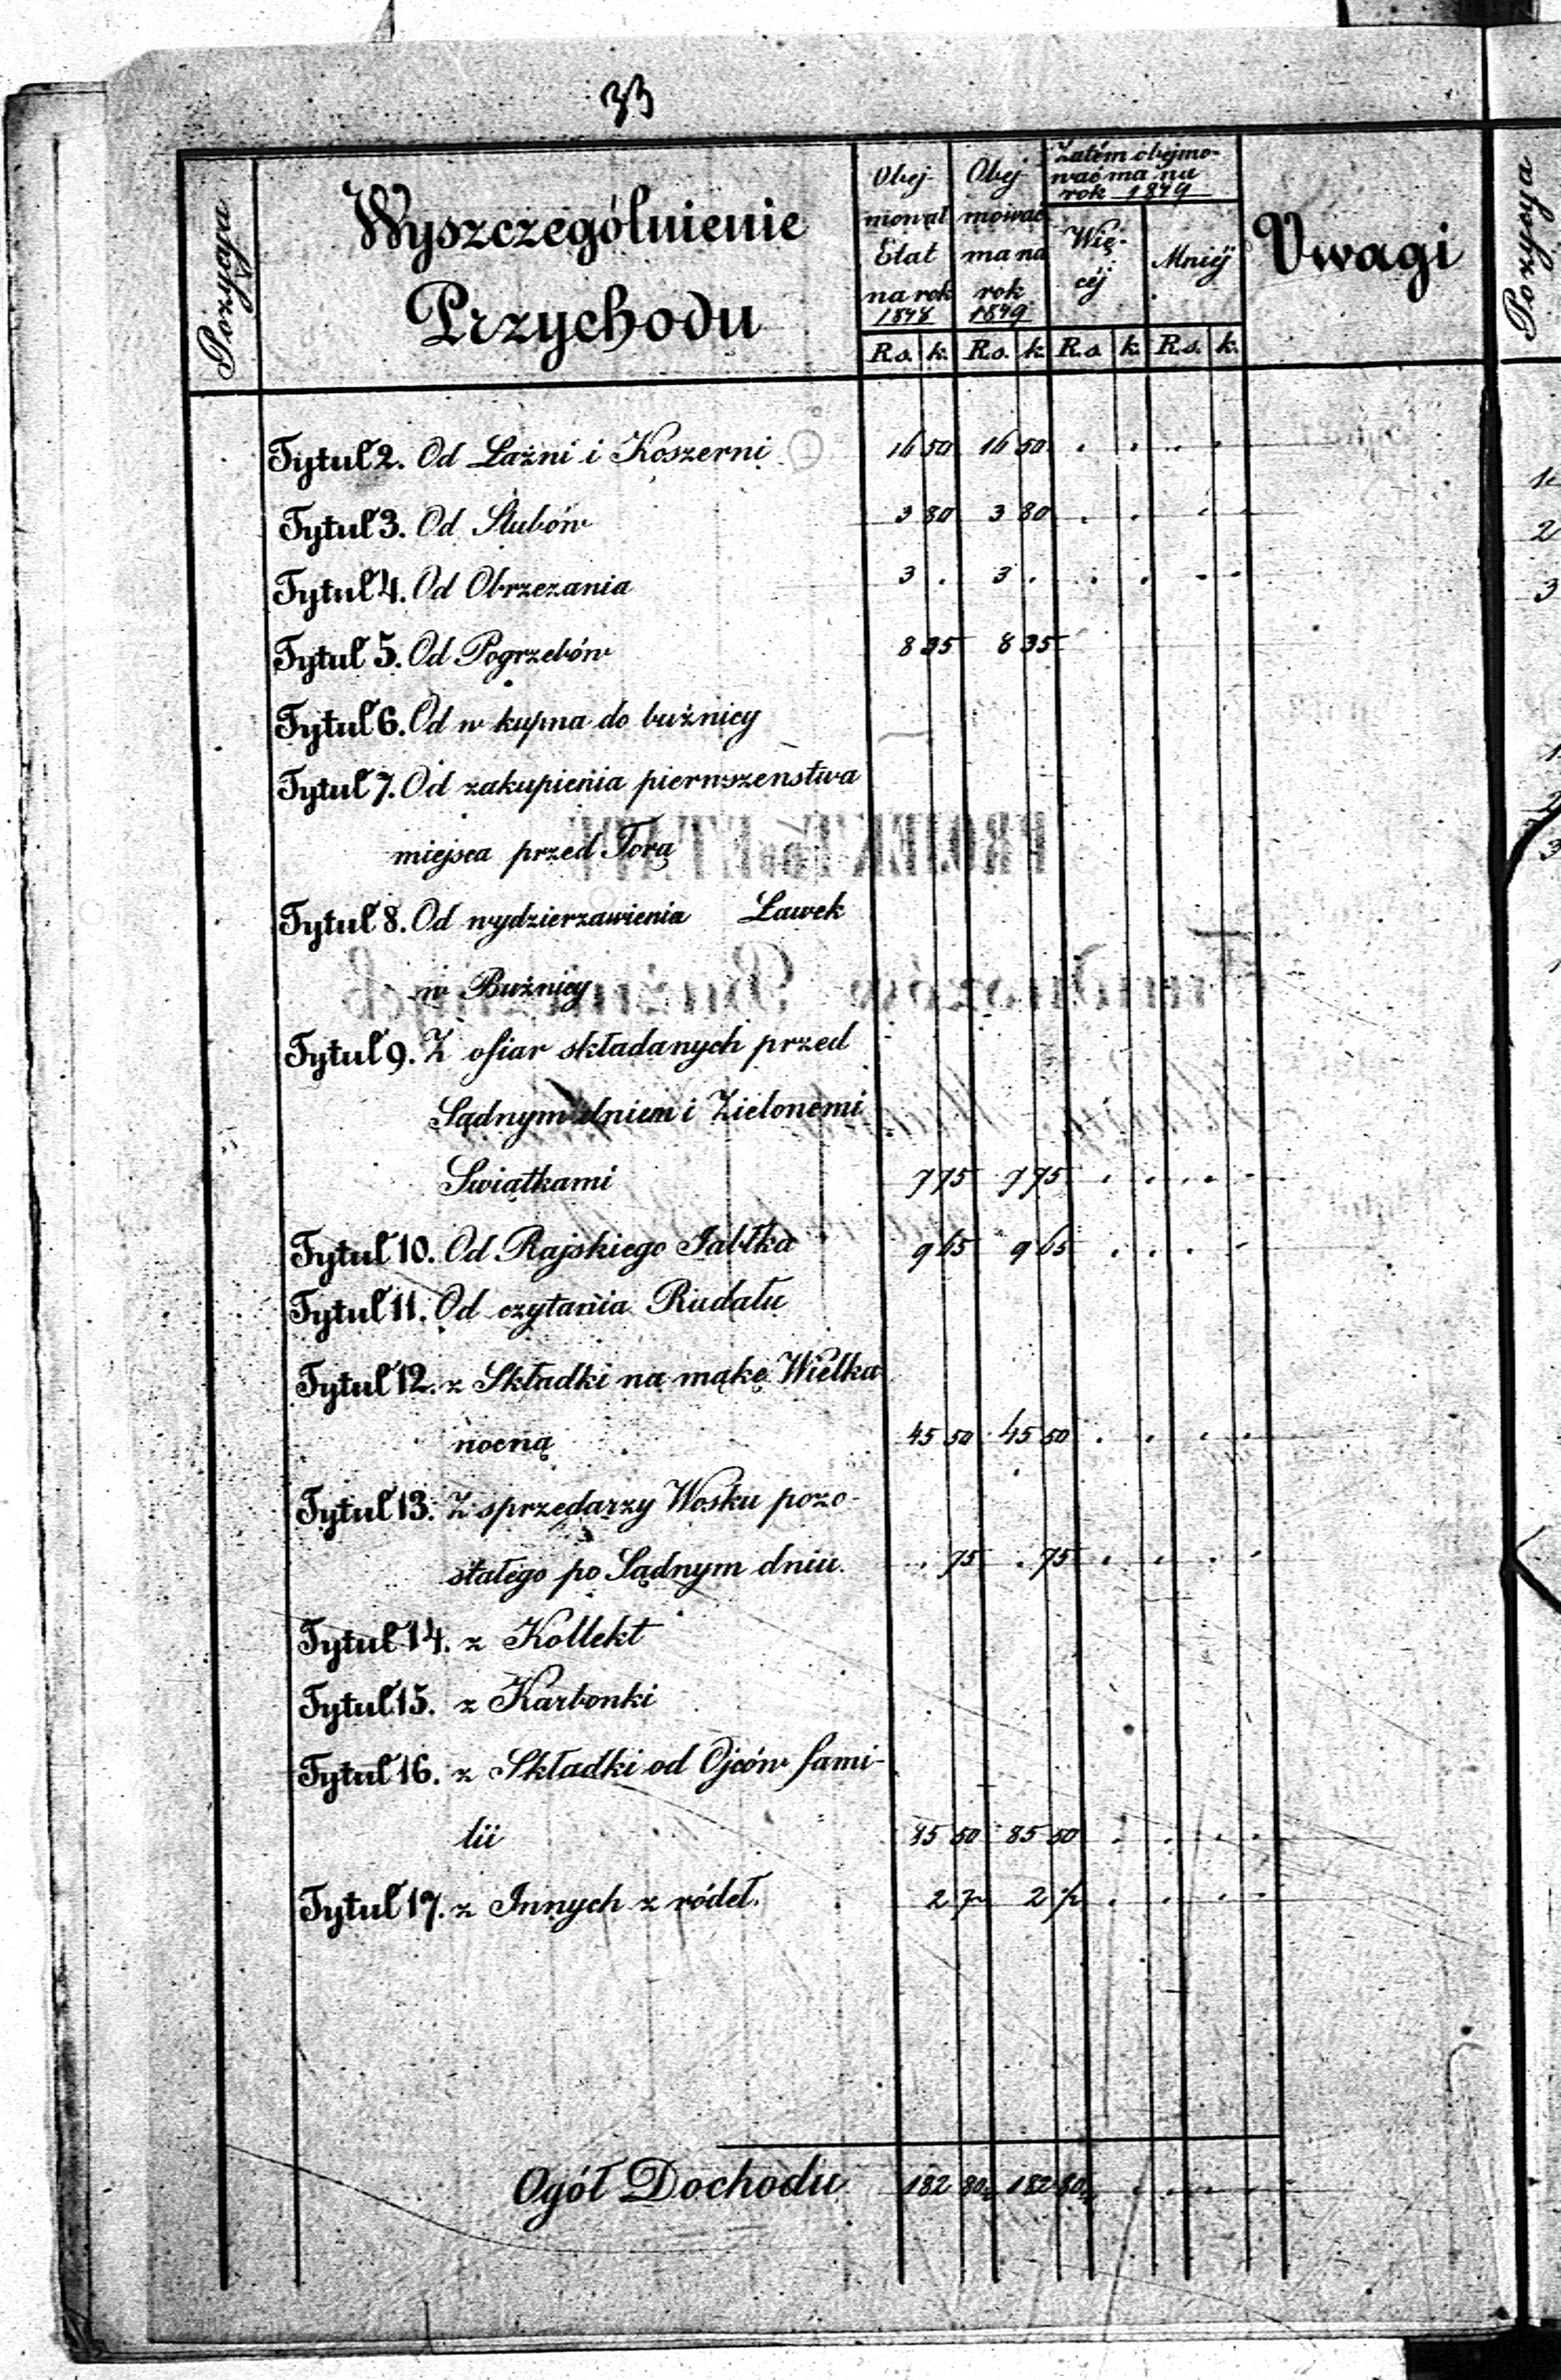 33
Pozycya
Wyszczególnienie
Przychodu
Obej-
mował
Etat
na rok
1848
Obej
mować
ma na
rok
1849
Zatém obejmo-
wać ma na
rok 1849
Wię-
céj
Mniéj
Uwagi
Pozycya
R.s. k. R.s. k. R.s. k. R.s. k.
Tytuł 2. Od Łaźni i Koszerni 16 50 16 50
Tytuł 3. Od Slubów 3 80 3 80
Tytuł 4. Od Obrzezania 3 . 3 .
Tytuł 5. Od Pogrzebów 8 35 8 35
Tytuł 6. Od w kupna do buźnicy
Tytuł 7. Od zakupienia pierwszenstwa
miejsca przed Torą
Tytuł 8. Od wydzierzawienia Ławek
w Buźnicy
Tytuł 9. Z ofiar składanych przed
Sądnym dniem i Zielonemi
Swiątkami 7 75 7 75
Tytuł 10. Od Rajskiego Jabłka 9 65 9 65
Tytuł 11. Od czytania Rudału
Tytuł 12. z Składki na mąkę Wielka
nocną 45 50 45 50
Tytuł 13. Z sprzedarzy Wosku pozo-
stałego po Sądnym dniu. . 75 . 75
Tytuł 14. z Kollekt
Tytuł 15. z Karbonki
Tytuł 16. z Składki od Ojców fami-
lii 85 50 85 50
Tytuł 17. z Innych z ródeł. 2 2
Ogół Dochodu 182 80 182 80